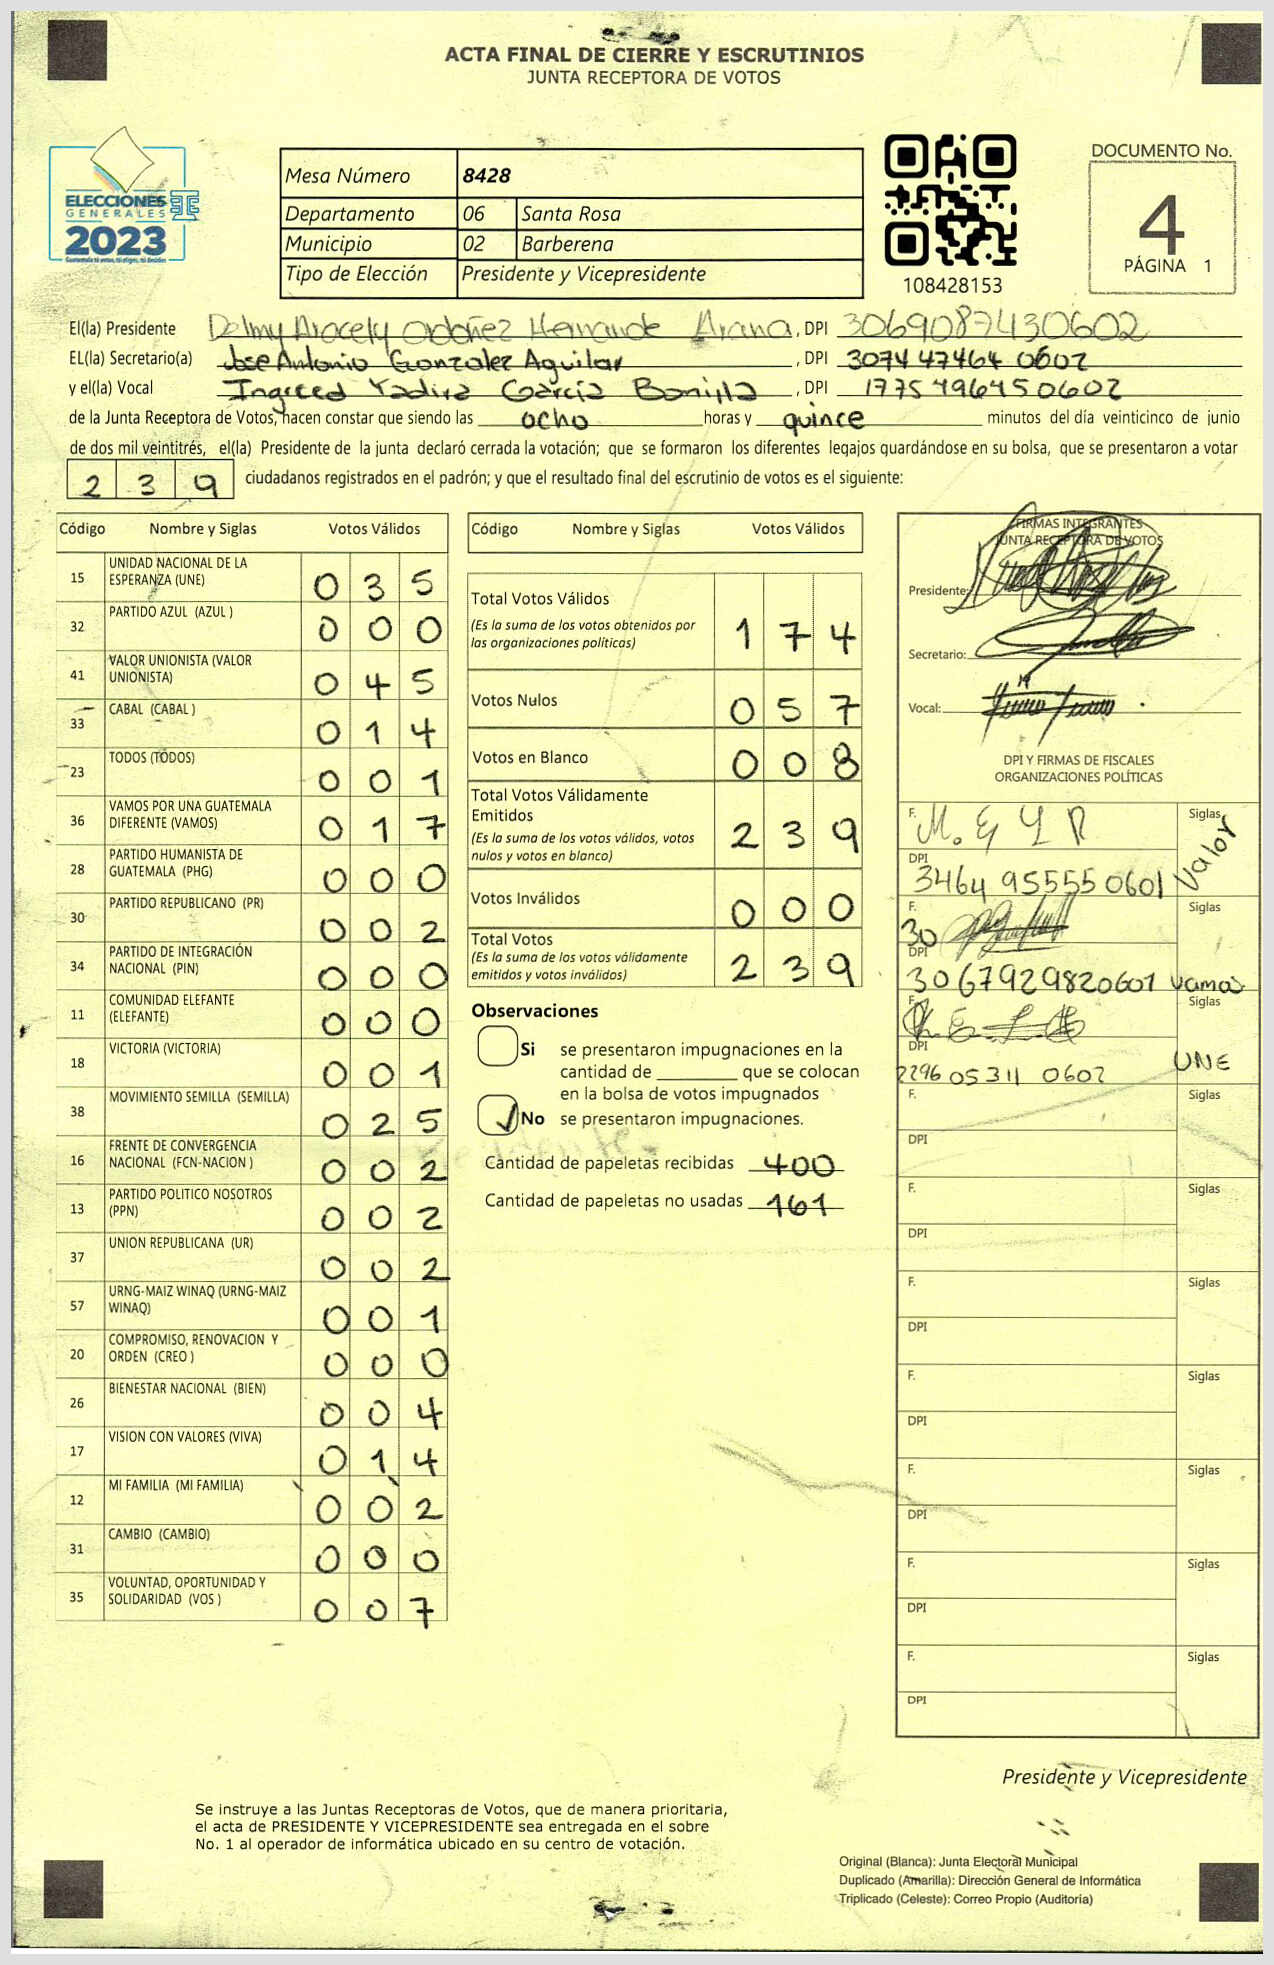 ACTA FINAL DE CIERRE Y ESCRUTINIOS
JUNTA RECEPTORA DE VOTOS
ELECCIONES
GENERALES
2023
Mesa Número 8428
Departamento 06 Santa Rosa
Municipio 02 Barberena
Tipo de Elección Presidente y Vicepresidente
108428153
DOCUMENTO No.
4
PÁGINA 1
El(la) Presidente Delmy Aracely Ordoñez Hernande Arana, DPI 3069087430602
EL(la) Secretario(a) Jose Antonio Gonzalez Aguilar, DPI 3074474640602
y el(la) Vocal Ingreed Yadira García Bonilla, DPI 1775496450602
de la Junta Receptora de Votos, hacen constar que siendo las ocho horas y quince minutos del día veinticinco de junio
de dos mil veintitrés, el(la) Presidente de la junta declaró cerrada la votación; que se formaron los diferentes legajos quardándose en su bolsa, que se presentaron a votar
2 3 9 ciudadanos registrados en el padrón; y que el resultado final del escrutinio de votos es el siguiente:
Código Nombre y Siglas Votos Válidos
15 UNIDAD NACIONAL DE LA ESPERANZA (UNE) 0 3 5
32 PARTIDO AZUL (AZUL ) 0 0 0
41 VALOR UNIONISTA (VALOR UNIONISTA) 0 4 5
33 CABAL (CABAL ) 0 1 4
23 TODOS (TODOS) 0 0 1
36 VAMOS POR UNA GUATEMALA DIFERENTE (VAMOS) 0 1 7
28 PARTIDO HUMANISTA DE GUATEMALA (PHG) 0 0 0
30 PARTIDO REPUBLICANO (PR) 0 0 2
34 PARTIDO DE INTEGRACIÓN NACIONAL (PIN) 0 0 0
11 COMUNIDAD ELEFANTE (ELEFANTE) 0 0 0
18 VICTORIA (VICTORIA) 0 0 1
38 MOVIMIENTO SEMILLA (SEMILLA) 0 2 5
16 FRENTE DE CONVERGENCIA NACIONAL (FCN-NACION ) 0 0 2
13 PARTIDO POLITICO NOSOTROS (PPN) 0 0 2
37 UNION REPUBLICANA (UR) 0 0 2
57 URNG-MAIZ WINAQ (URNG-MAIZ WINAQ) 0 0 1
20 COMPROMISO, RENOVACION Y ORDEN (CREO ) 0 0 0
26 BIENESTAR NACIONAL (BIEN) 0 0 4
17 VISION CON VALORES (VIVA) 0 1 4
12 MI FAMILIA (MI FAMILIA) 0 0 2
31 CAMBIO (CAMBIO) 0 0 0
35 VOLUNTAD, OPORTUNIDAD Y SOLIDARIDAD (VOS ) 0 0 7
Código Nombre y Siglas Votos Válidos
Total Votos Válidos 1 7 4
(Es la suma de los votos obtenidos por
las organizaciones políticas)
Votos Nulos 0 5 7
Votos en Blanco 0 0 8
Total Votos Válidamente
Emitidos 2 3 9
(Es la suma de los votos válidos, votos
nulos y votos en blanco)
Votos Inválidos 0 0 0
Total Votos 2 3 9
(Es la suma de los votos válidamente
emitidos y votos inválidos)
Observaciones
Si se presentaron impugnaciones en la
cantidad de ________ que se colocan
en la bolsa de votos impugnados
No se presentaron impugnaciones.
Cantidad de papeletas recibidas 400
Cantidad de papeletas no usadas 161
FIRMAS INTEGRANTES
JUNTA RECEPTORA DE VOTOS
Presidente:
Secretario:
Vocal:
DPI Y FIRMAS DE FISCALES
ORGANIZACIONES POLÍTICAS
F. M. E Y R Siglas
DPI 3464 95555 0601 Valor
F. 30 Siglas
DPI 3067929820601 vamos
F. Siglas
DPI 2296 05311 0602 UNE
F. Siglas
DPI
F. Siglas
DPI
F. Siglas
DPI
F. Siglas
DPI
F. Siglas
DPI
F. Siglas
DPI
F. Siglas
DPI
Presidente y Vicepresidente
Se instruye a las Juntas Receptoras de Votos, que de manera prioritaria,
el acta de PRESIDENTE Y VICEPRESIDENTE sea entregada en el sobre
No. 1 al operador de informática ubicado en su centro de votación.
Original (Blanca): Junta Electoral Municipal
Duplicado (Amarilla): Dirección General de Informática
Triplicado (Celeste): Correo Propio (Auditoría)